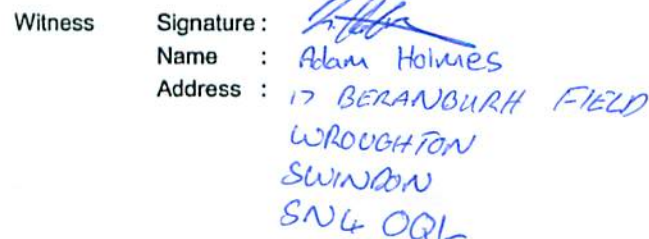 Witness Signature :
Name : Adam Holmes
Address : 17 BERANBURH FIELD
WROUGHTON
SWINDON
SN4 0QL